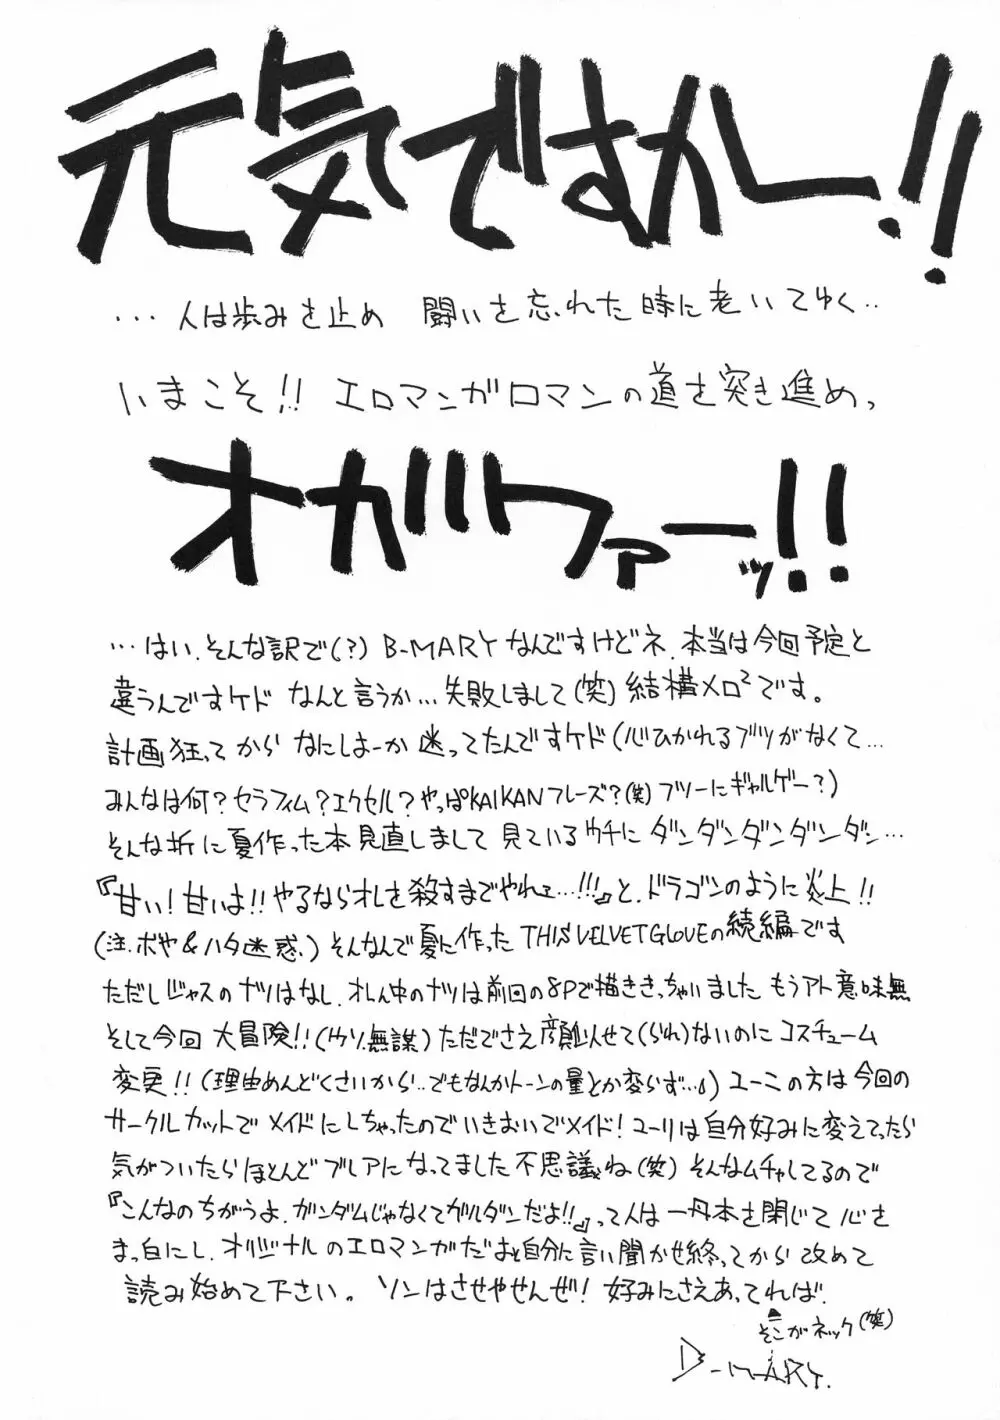 元気ですかー!!
…人は歩みを止め 闘いを忘れた時に老いてゆく‥
いまこそ!! エロマンガロマンの道を突き進めっ
オガワァーッ!!
…はい、そんな訳で(?)B-MARYなんですけどネ、本当は今回予定と
違うんですケド なんと言うか…失敗しまして(笑)結構メロ²です。
計画狂ってから なにしよーか 迷ってたんですケド(心ひかれるブツがなくて…
みんなは何?セラフィム?エクセル?やっぱKAIKANフレーズ?(笑)フツーにギャルゲー?)
そんな折に夏作った本見直しまして 見ているウチに ダンダンダンダンダン…
『甘い!甘いよ!!やるならオレを殺すまでやれェ…!!!』と、ドラゴンのように炎上!!
(注.ボヤ&ハタ迷惑.)そんなんで夏に作ったTHIS VELVET GLOVEの続編です
ただしジャスのナツはなし、オレん中のナツは前回の8Pで描ききっちゃいました もうアト意味無
そして今回 大冒険!!(ウソ.無謀)ただでさえ顔似せて(られ)ないのに コスチューム
変更!!(理由めんどくさいから‥でもなんかトーンの量とか変らず…♩)ユーこの方は今回の
サークルカットで メイドにしちゃったのでいきおいでメイド!ユーリは自分好みに変えてったら
気がついたらほとんどブレアになってました不思議ね(笑)そんなムチャしてるので
『こんなのちがうよ、ガンダムじゃなくてガルダンだよ!!』って人は 一旦本を閉じて 心を
まっ白にし、オリジナルのエロマンガだぁと自分に言い聞かせ終ってから 改めて
読み始めて下さい。 ソンはさせやせんぜ! 好みにさえあってれば.
そこがネック(笑)
B-MARY.